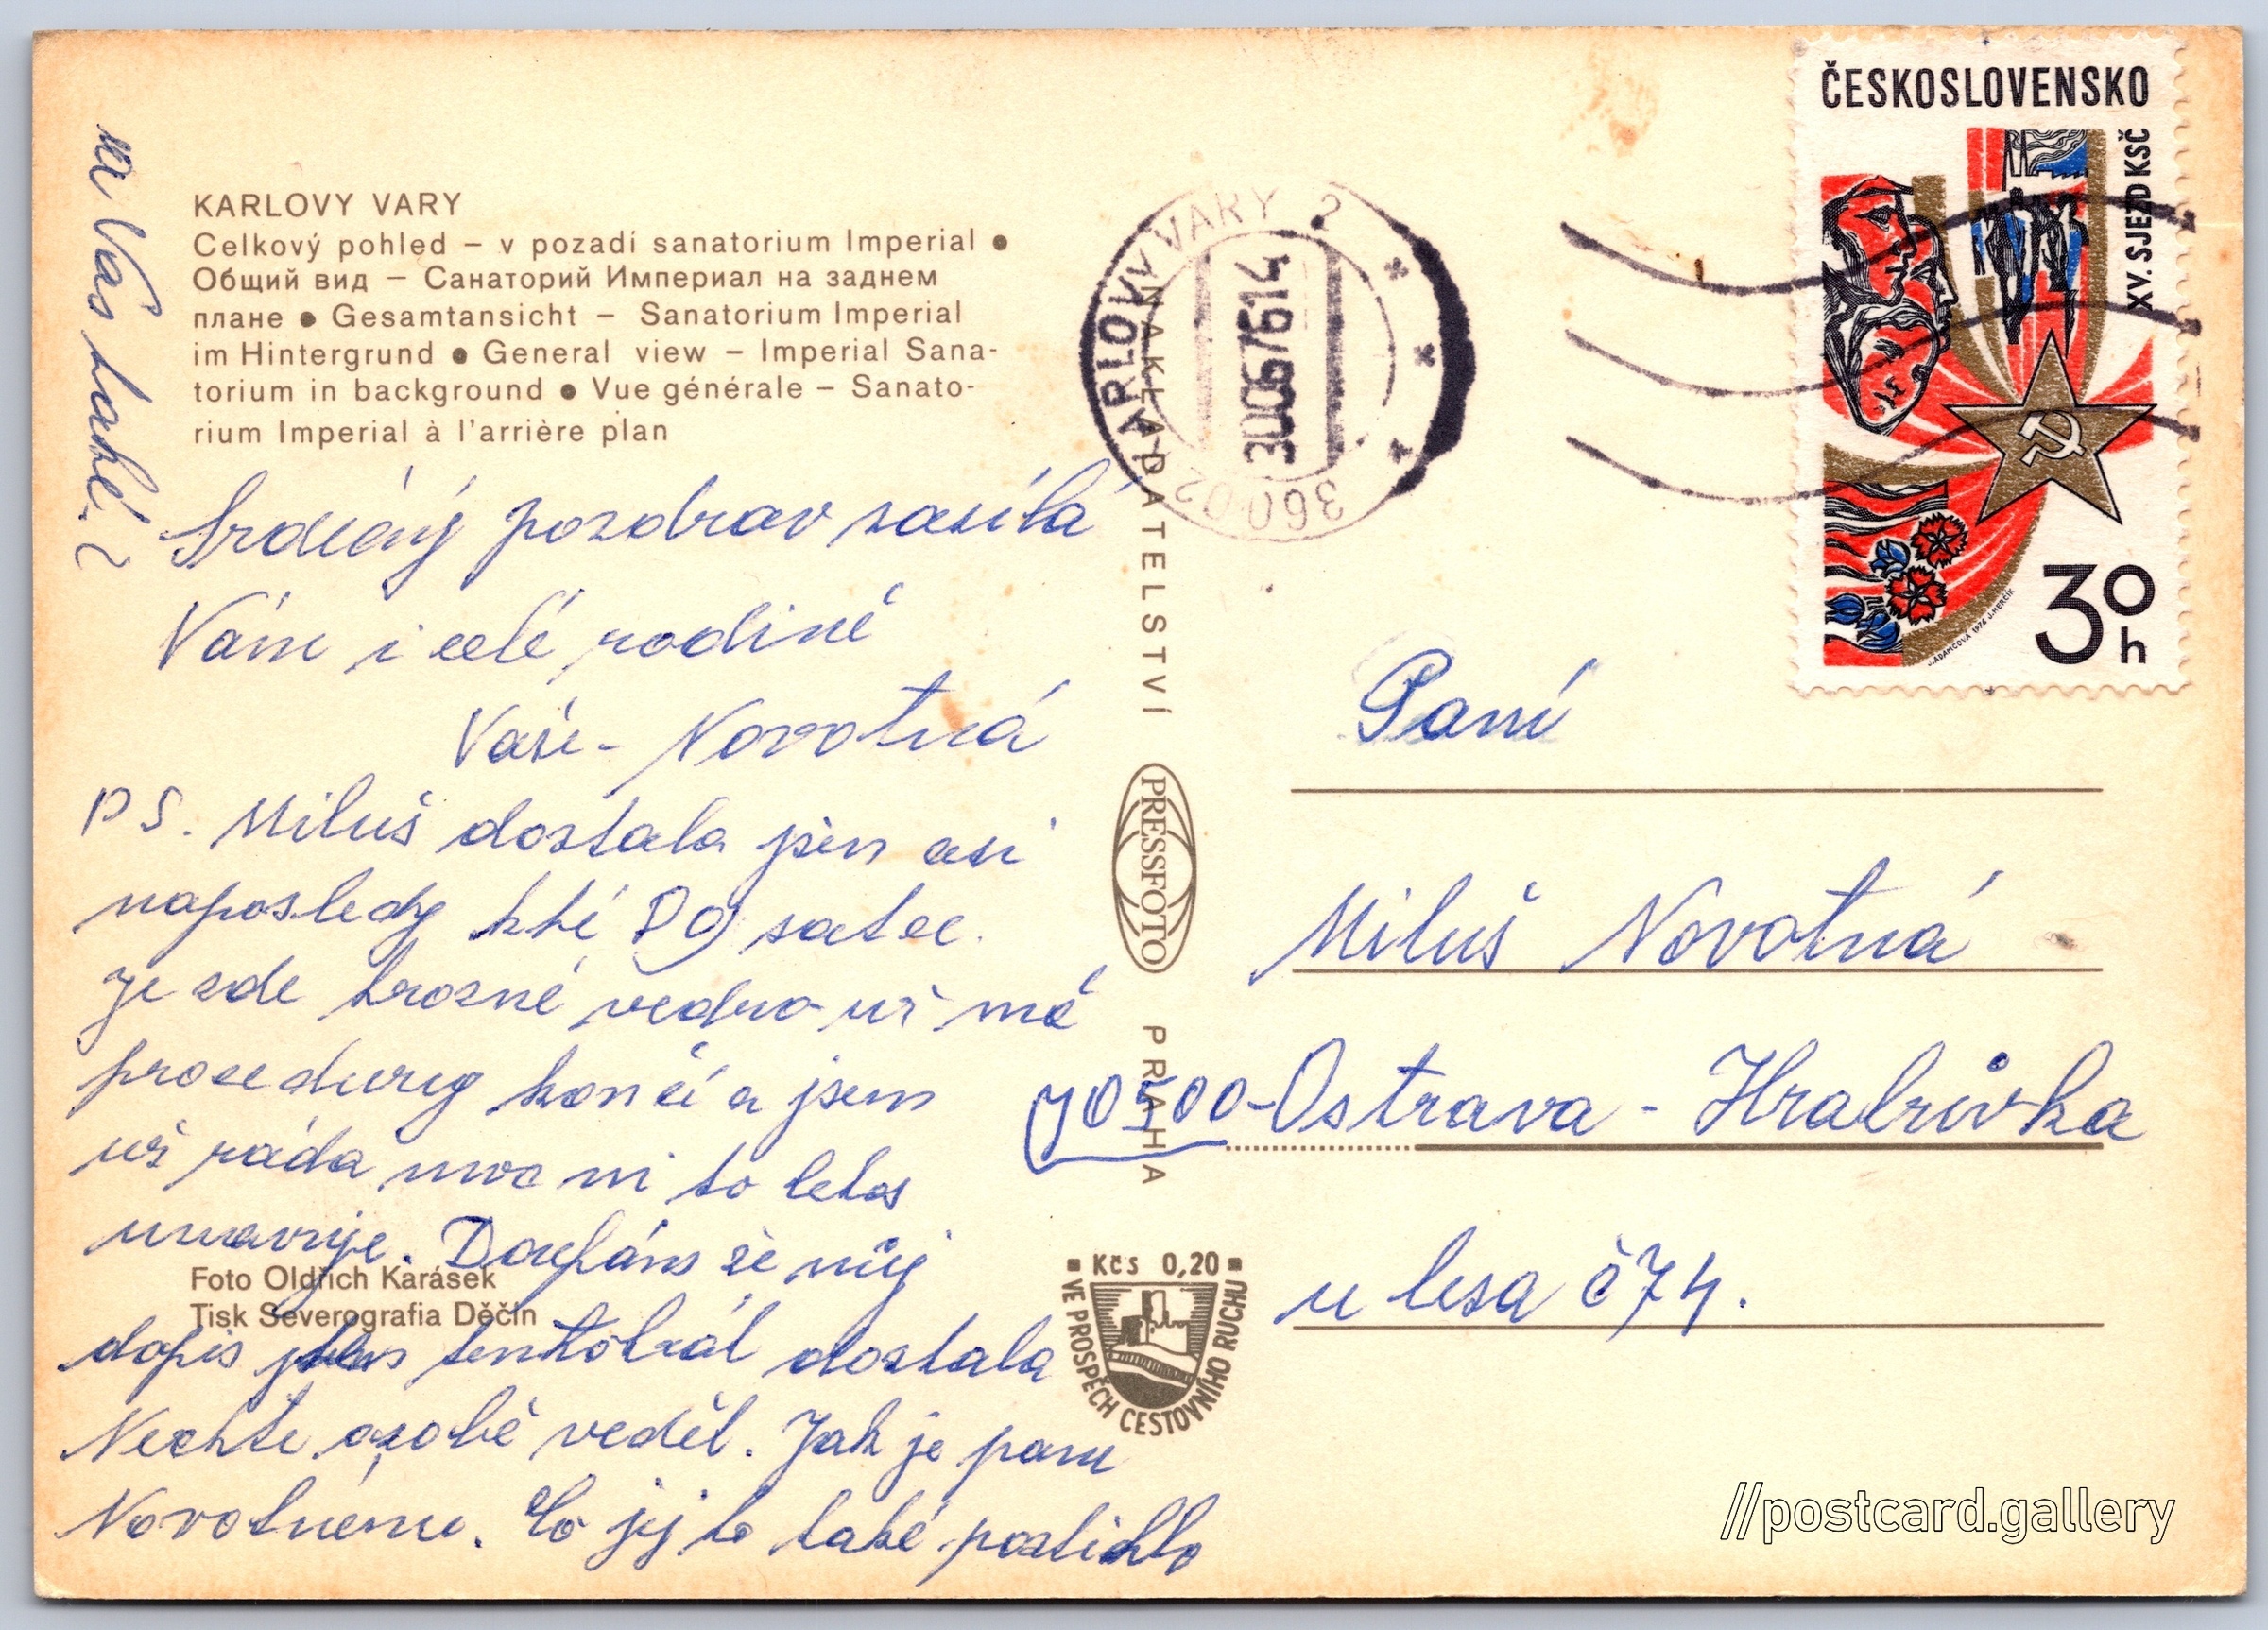 KARLOVY VARY
Celkový pohled – v pozadí sanatorium Imperial ●
Общий вид – Санаторий Империал на заднем
плане ● Gesamtansicht – Sanatorium Imperial
im Hintergrund ● General view – Imperial Sana-
torium in background ● Vue générale – Sanato-
rium Imperial à l'arrière plan
Srdečný pozdrav zasílá
Vám i celé rodině
Vaše - Novotná
PS. Miluš dostala jsem asi
naposledy
Je zde hrozné vedro už mě
procedury končí a jsem
už ráda moc mi to letos
unavuje. Doufám že můj
dopis jste tentokrát dostala
Nechte o sobě vědět. Jak je panu
Novotnému. Co jej to také postihlo
u Vás také.
Foto Oldřich Karásek
Tisk Severografia Děčín
NAKLADATELSTVÍ
PRESSFOTO
PRAHA
Kčs 0,20
VE PROSPĚCH CESTOVNÍHO RUCHU
KARLOVY VARY 2
300676 14
360 02
ČESKOSLOVENSKO
XV. SJEZD KSČ
30 h
J. ADAMCOVÁ 1976 J. HERČÍK
Paní
Miluš Novotná
70500 - Ostrava - Hrabůvka
u lesa č 74.
//postcard.gallery